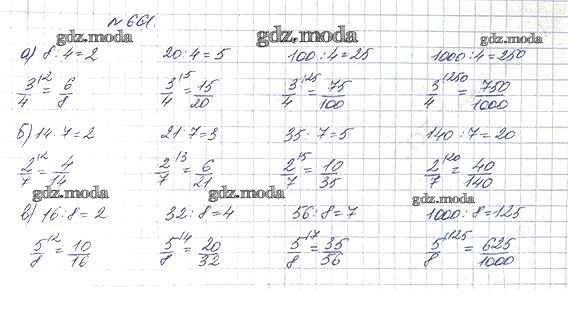 № 661.
gdz.moda gdz.moda gdz.moda
а) 8 : 4 = 2 20 : 4 = 5 100 : 4 = 25 1000 : 4 = 250
3/4 |·2 = 6/8 3/4 |·5 = 15/20 3/4 |·25 = 75/100 3/4 |·250 = 750/1000
б) 14 : 7 = 2 21 : 7 = 3 35 : 7 = 5 140 : 7 = 20
2/7 |·2 = 4/14 2/7 |·3 = 6/21 2/7 |·5 = 10/35 2/7 |·20 = 40/140
gdz.moda gdz.moda gdz.moda gdz.moda
в) 16 : 8 = 2 32 : 8 = 4 56 : 8 = 7 1000 : 8 = 125
5/8 |·2 = 10/16 5/8 |·4 = 20/32 5/8 |·7 = 35/56 5/8 |·125 = 625/1000